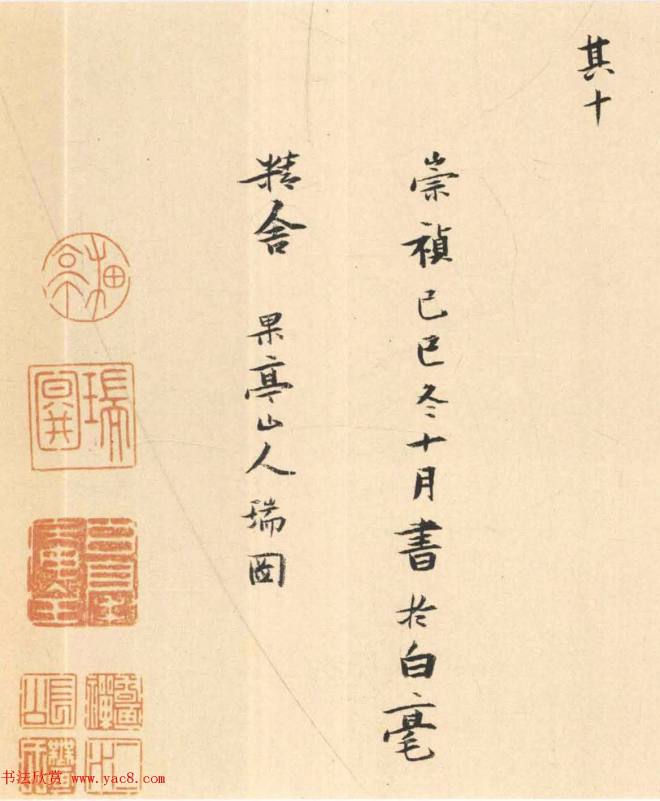 其十
崇禎己巳冬十月書於白毫
精舍 果亭山人瑞圖
瑞圖
书法欣赏 www.yac8.com